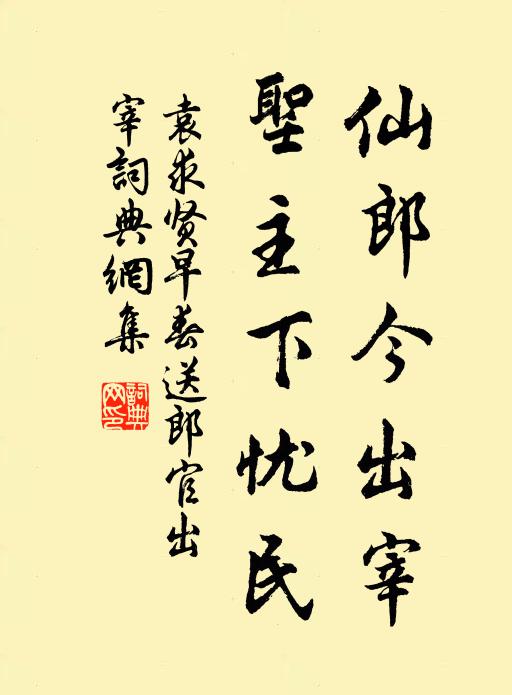 仙郎今出宰
聖主下忧民
袁求贤早春送郎官出
宰詞典網集
詞典
网印